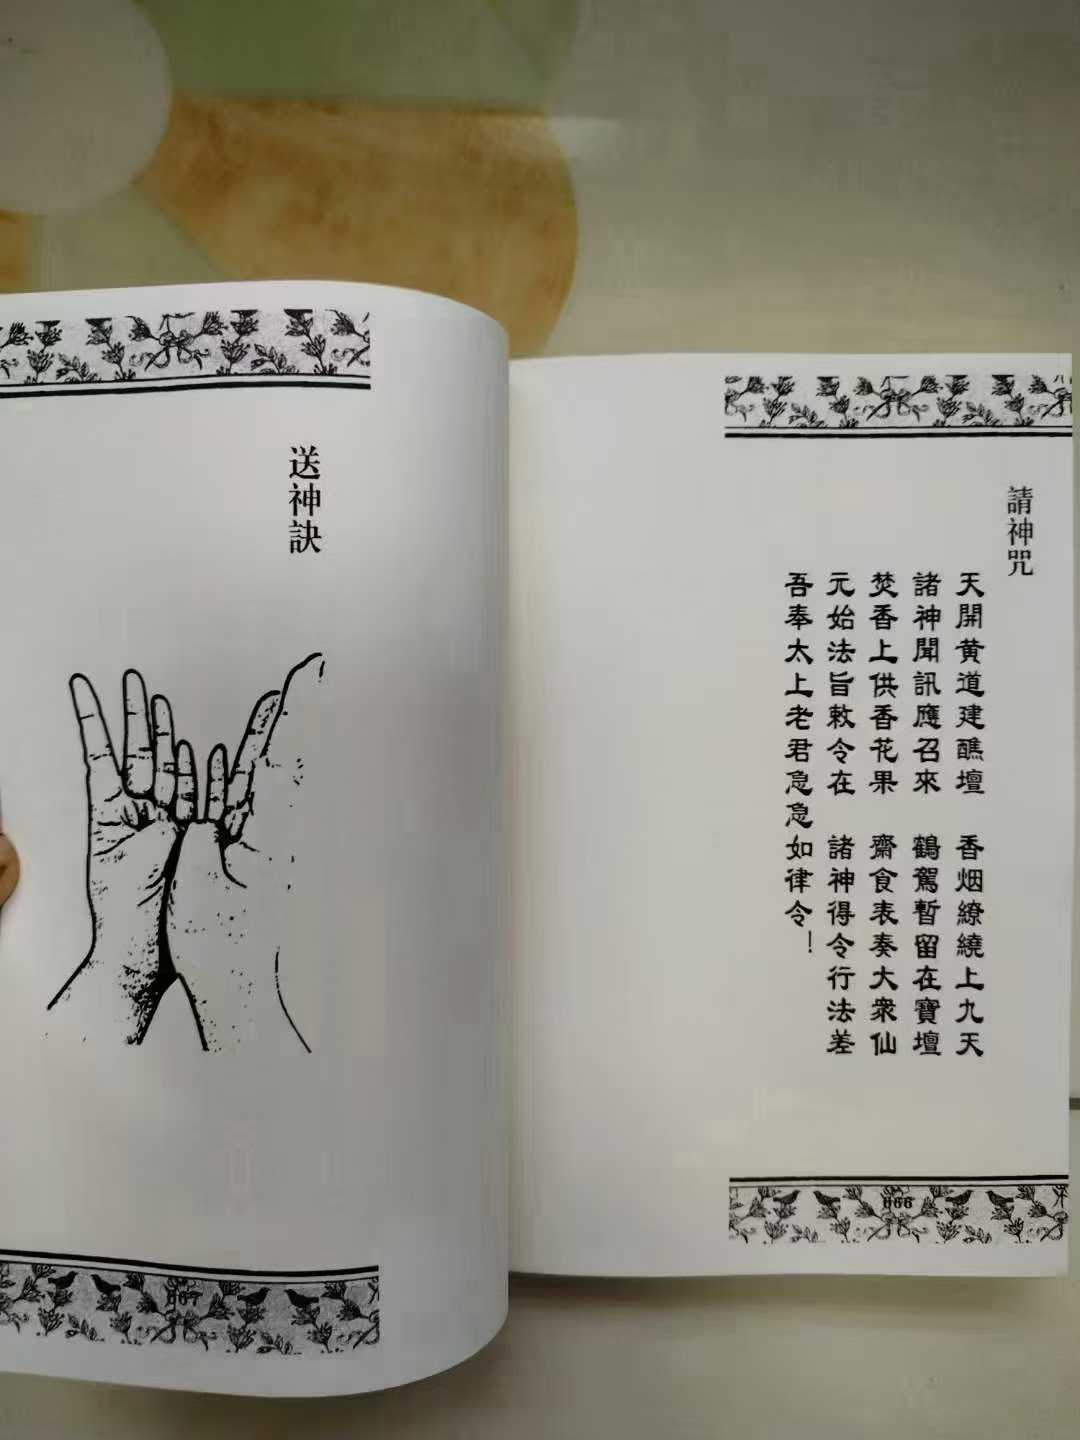 請神咒
天開黃道建醮壇　香烟繚繞上九天
諸神聞訊應召來　鶴駕暫留在寶壇
焚香上供香花果　齋食表奏大衆仙
元始法旨敕令在　諸神得令行法差
吾奉太上老君急急如律令！
666
送神訣
667